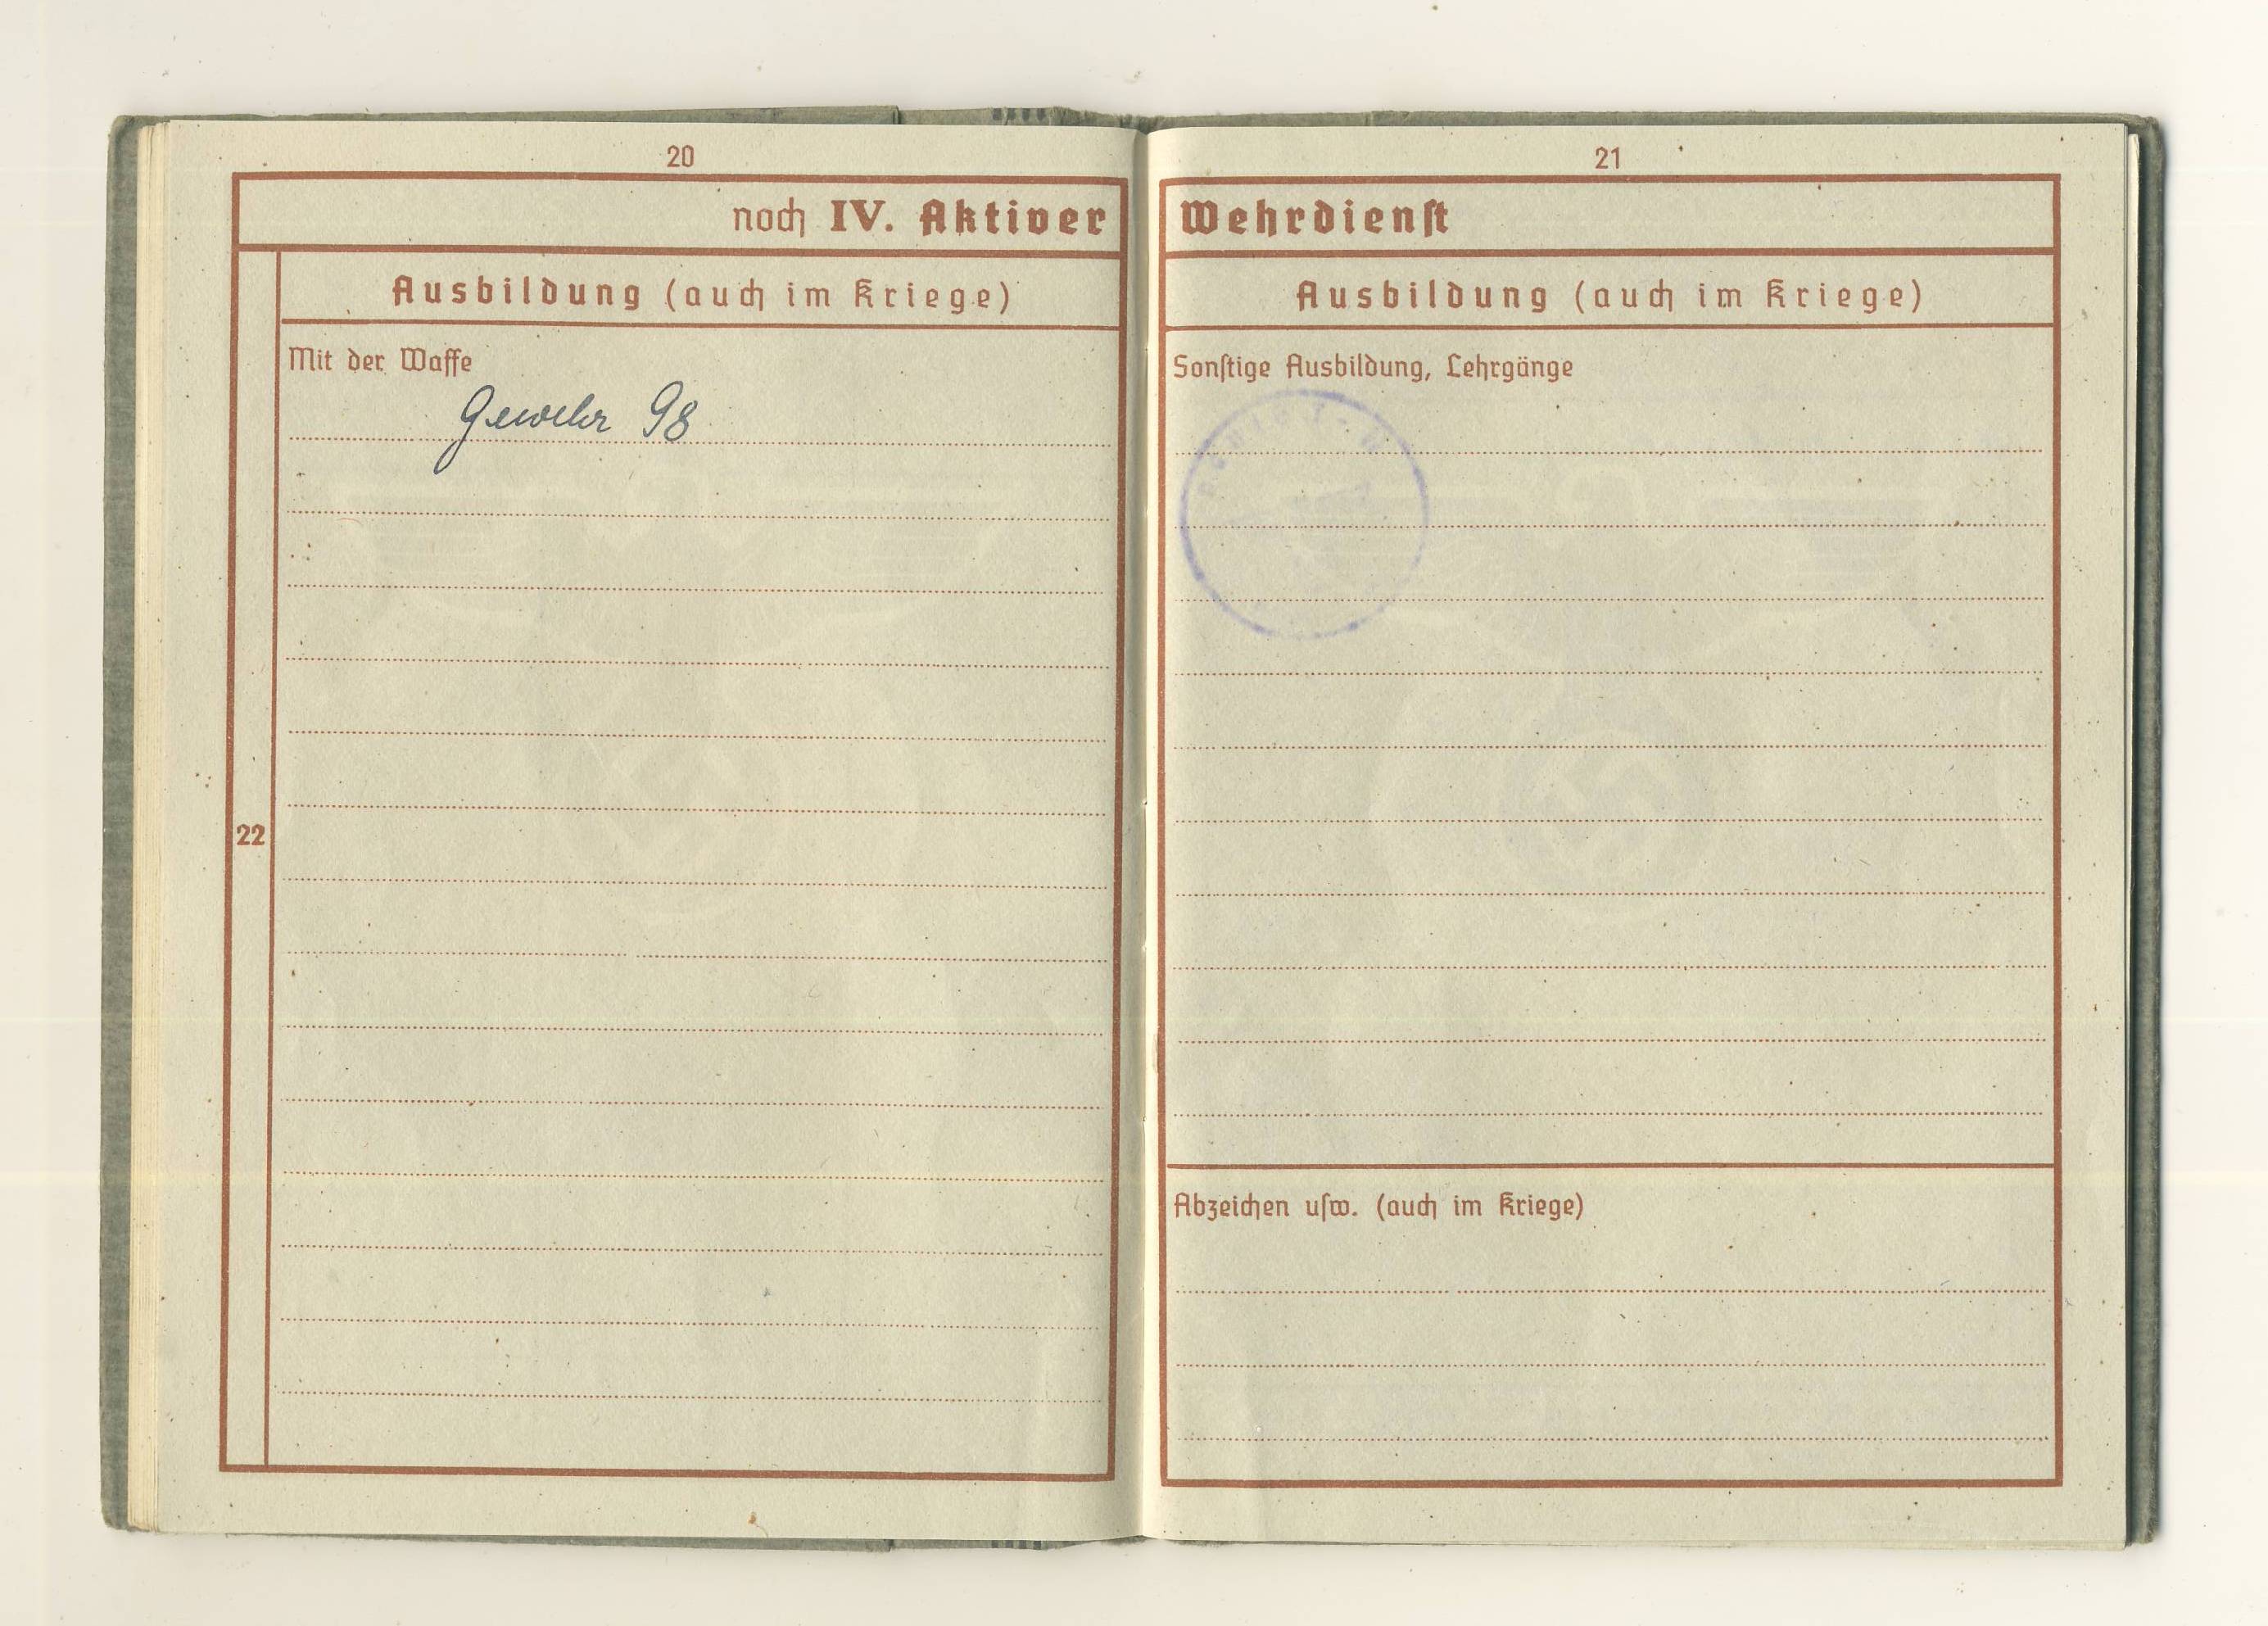 20
noch IV. Aktiver
Ausbildung (auch im Kriege)
Mit der Waffe
Gewehr 98
22
21
Wehrdienſt
Ausbildung (auch im Kriege)
Sonſtige Ausbildung, Lehrgänge
Abzeichen uſw. (auch im Kriege)